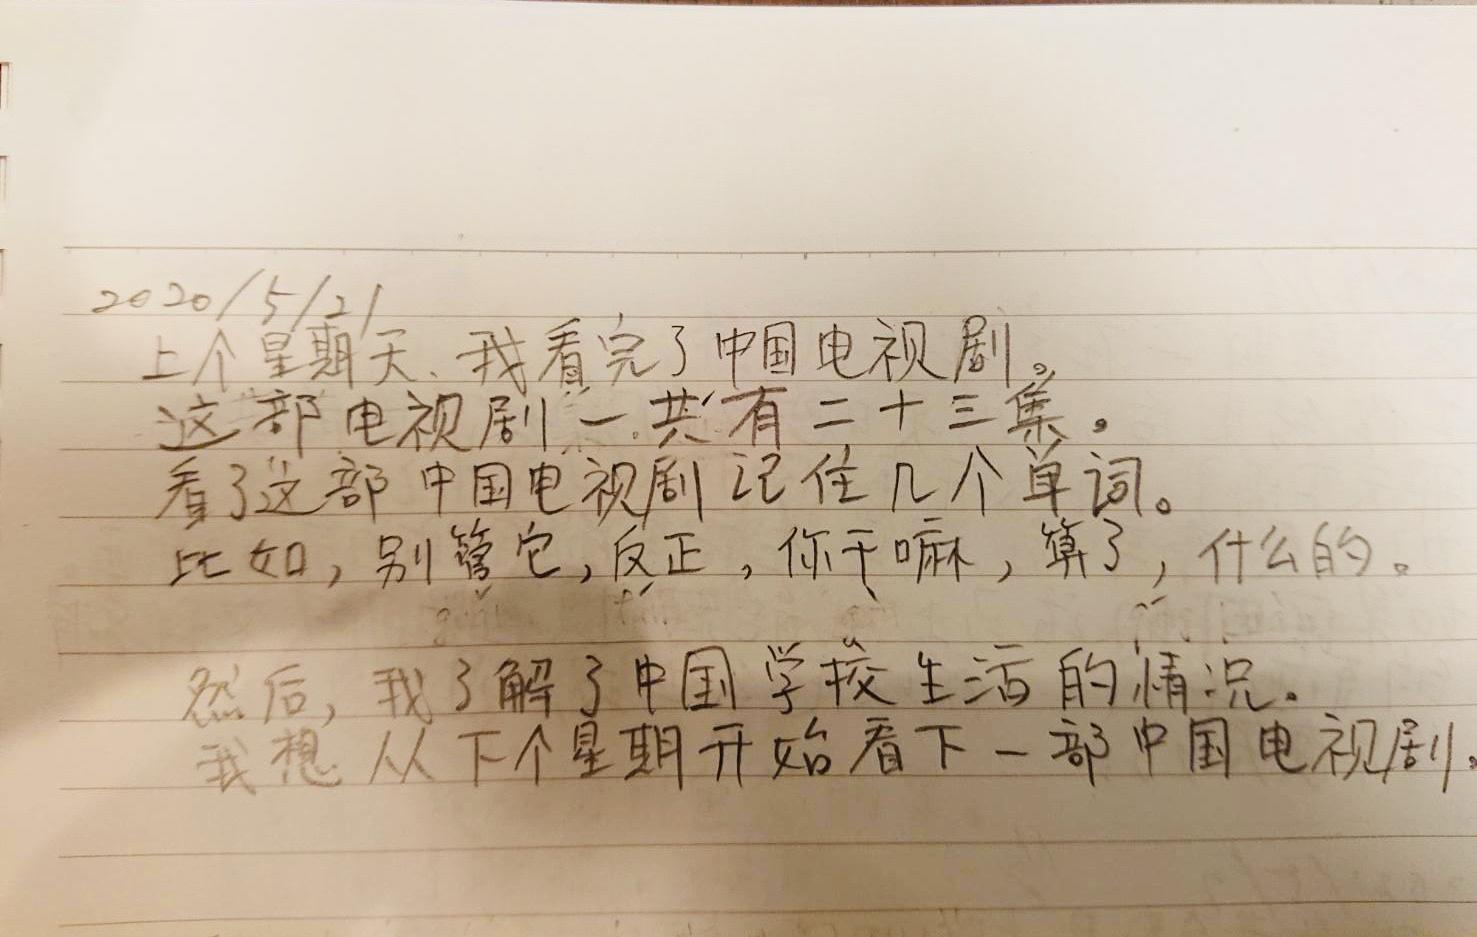 2020/5/21
上个星期天、我看完了中国电视剧。
这部电视剧一共有二十三集。
看了这部中国电视剧记住几个单词。
比如，别管它，反正，你干嘛，算了，什么的。
然后，我了解了中国学校生活的情况。
我想从下个星期开始看下一部中国电视剧。